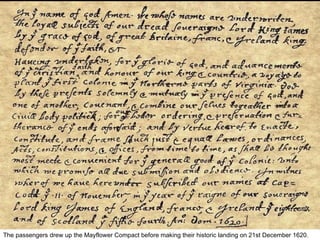 In yᵉ name of God Amen. We whose names are underwriten,
the loyall subjects of our dread soveraigne Lord King James
by yᵉ grace of God, of great Britaine, franc, & Ireland king,
defendor of yᵉ faith, &c
Haveing undertaken, for yᵉ glorie of God, and advancemente
of yᵉ christian faith and honour of our king & countrie, a voyage to
plant yᵉ first colonie in yᵉ Northerne parts of Virginia. Doe
by these presents solemnly & mutualy in yᵉ presence of God, and
one of another, covenant, & combine our selves togeather into a
Civill body politick, for our better ordering, & preservation & fur-
therance of yᵉ ends aforesaid; and by vertue hearof to enacte,
constitute, and frame shuch just & equall Lawes, ordinances,
Acts, constitutions, & offices, from time to time, as shall be thought
most meete & convenient for yᵉ generall good of yᵉ colonie: unto
which we promise all due submission and obedience. In witnes
wherof we have hereunder subscribed our names at Cap-
Codd yᵉ ·11· of November, in yᵉ year of yᵉ raigne of our soveraigne
Lord king James of England, franc, & Ireland yᵉ eighteenth
and of Scotland yᵉ fiftie fourth. Ano Dom. 1620.
The passengers drew up the Mayflower Compact before making their historic landing on 21st December 1620.